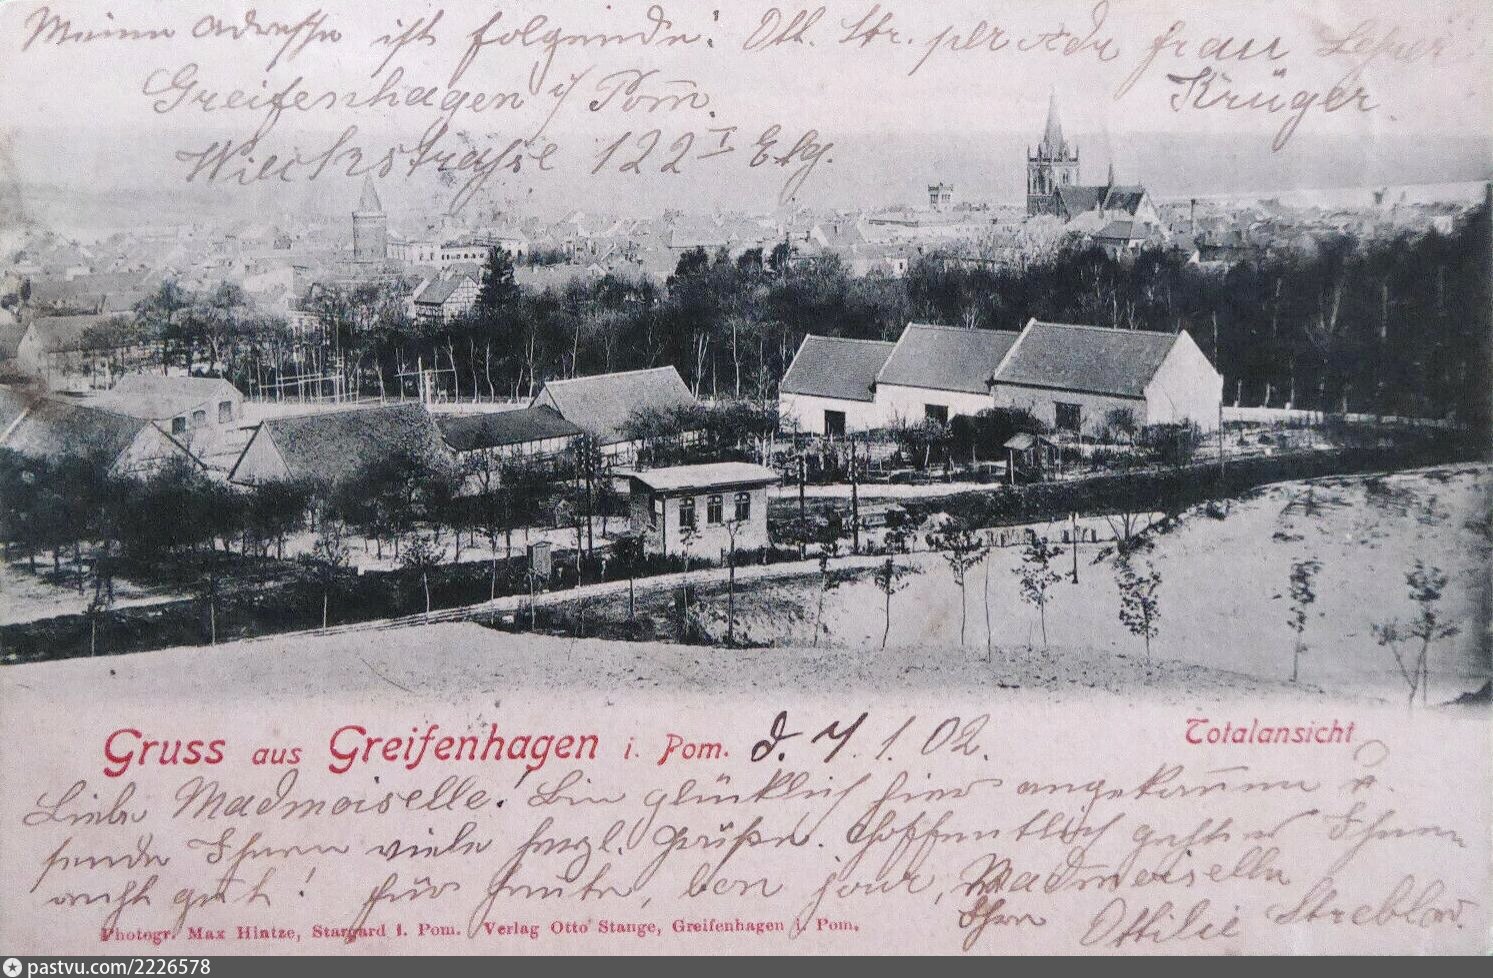 Meine Adresse ist folgende: Ott. Str. per Adr frau Lehrer
Krüger.
Greifenhagen i/ Pom̅.
Wieckstraße 122 I Etg.
Gruss aus Greifenhagen i. Pom. d. 7. 1. 02.
Totalansicht
Liebe Mademoiselle! Bin glücklich hier angekom̅en u.
sende Ihnen viele herzl. Grüße. Hoffentlich geht es Ihnen
recht gut! Für heute, bon jour, Mademoiselle
Ihre Ottilie Streblow.
Photogr. Max Hintze, Stargard i. Pom. Verlag Otto Stange, Greifenhagen i. Pom.
pastvu.com/2226578